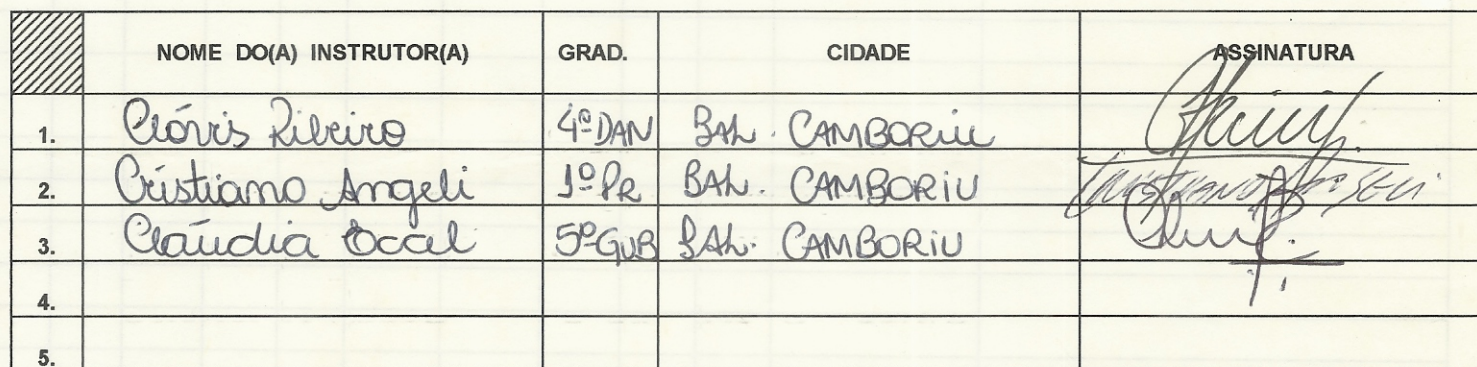 NOME DO(A) INSTRUTOR(A) GRAD. CIDADE ASSINATURA
1. Clóvis Ribeiro 4º DAN BAL. CAMBORIU
2. Cristiano Angeli 1º PR BAL. CAMBORIU
3. Claúdia Occal 5º GUB BAL. CAMBORIU
4.
5.